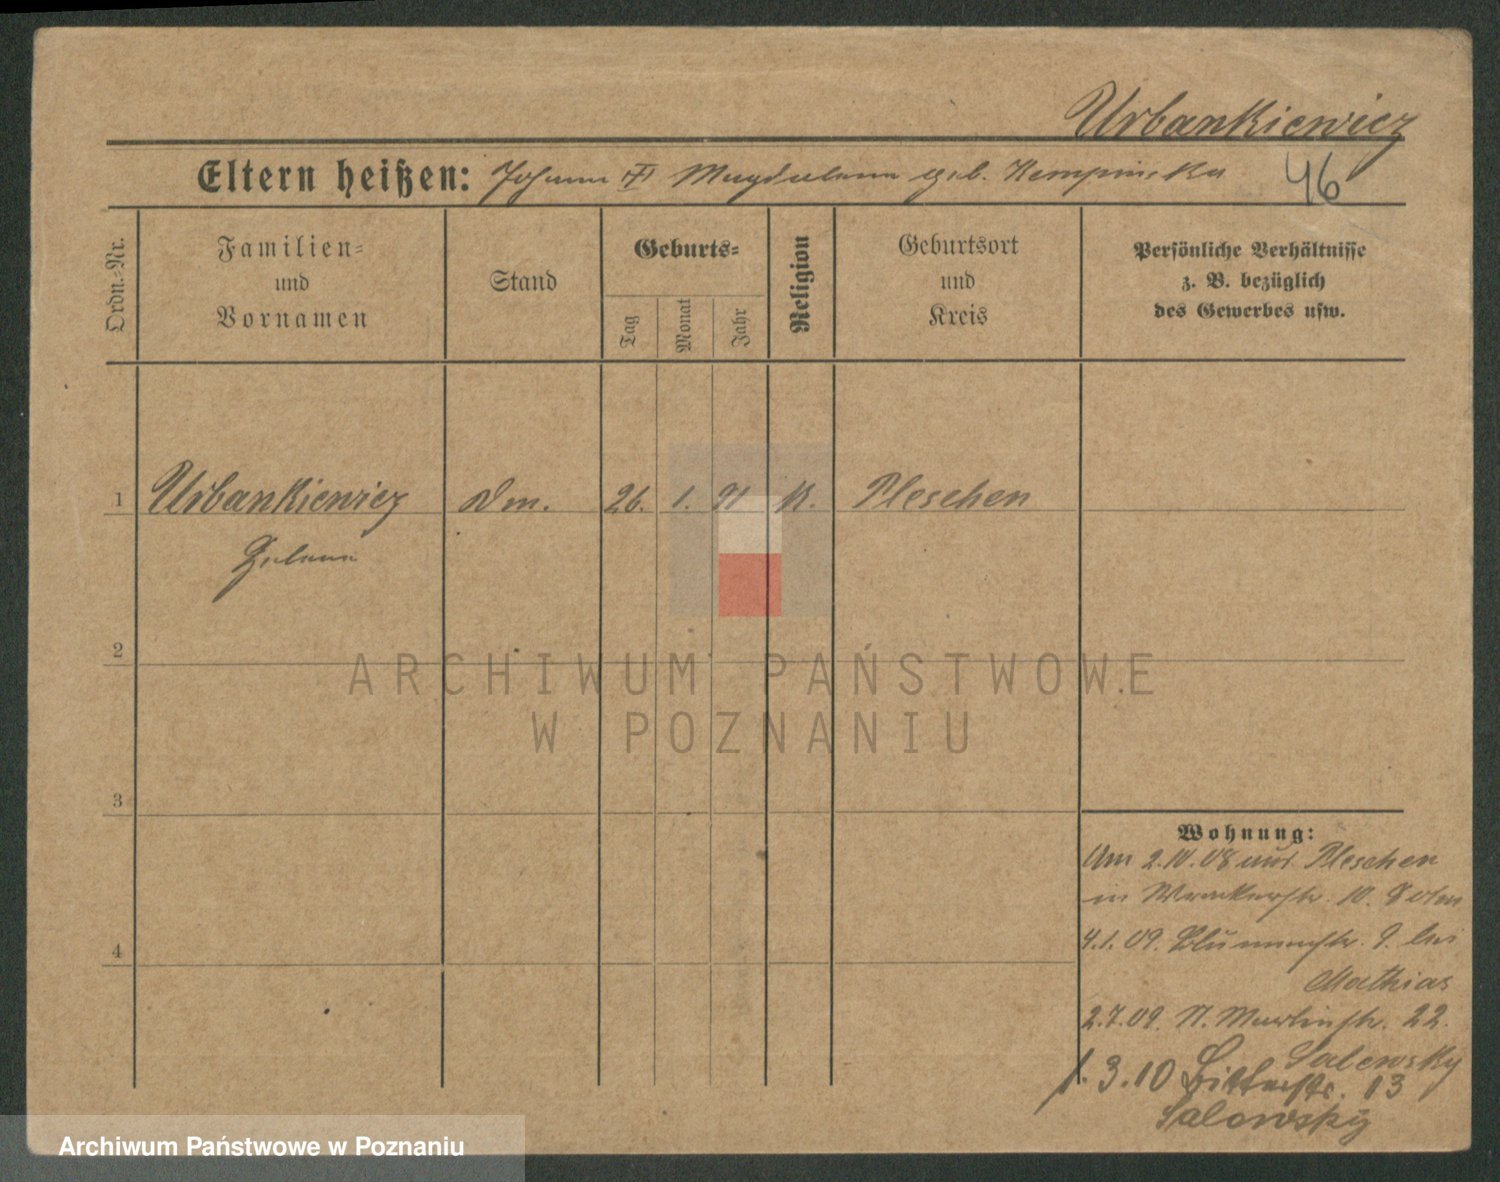 Urbankiewicz
46
Eltern heißen: Johann Magdalena geb. Kempinska
Ordn.-Nr.
Familien- und Vornamen
Stand
Geburts-
Tag
Monat
Jahr
Religion
Geburtsort und Kreis
Persönliche Verhältnisse z. B. bezüglich des Gewerbes usw.
1 Urbankiewicz Dm. 26. 1. 91 K. Pleschen
Helena
2
3
4
Wohnung:
Am 2.10.08 aus Pleschen
in 10.
4.1.09. Blumenstr. 9. bei
Mathias
2.7.09. St. Martinstr. 22.
Salewsky
1.3.10 Ritterstr. 13
Salowsky
ARCHIWUM PAŃSTWOWE
W POZNANIU
Archiwum Państwowe w Poznaniu